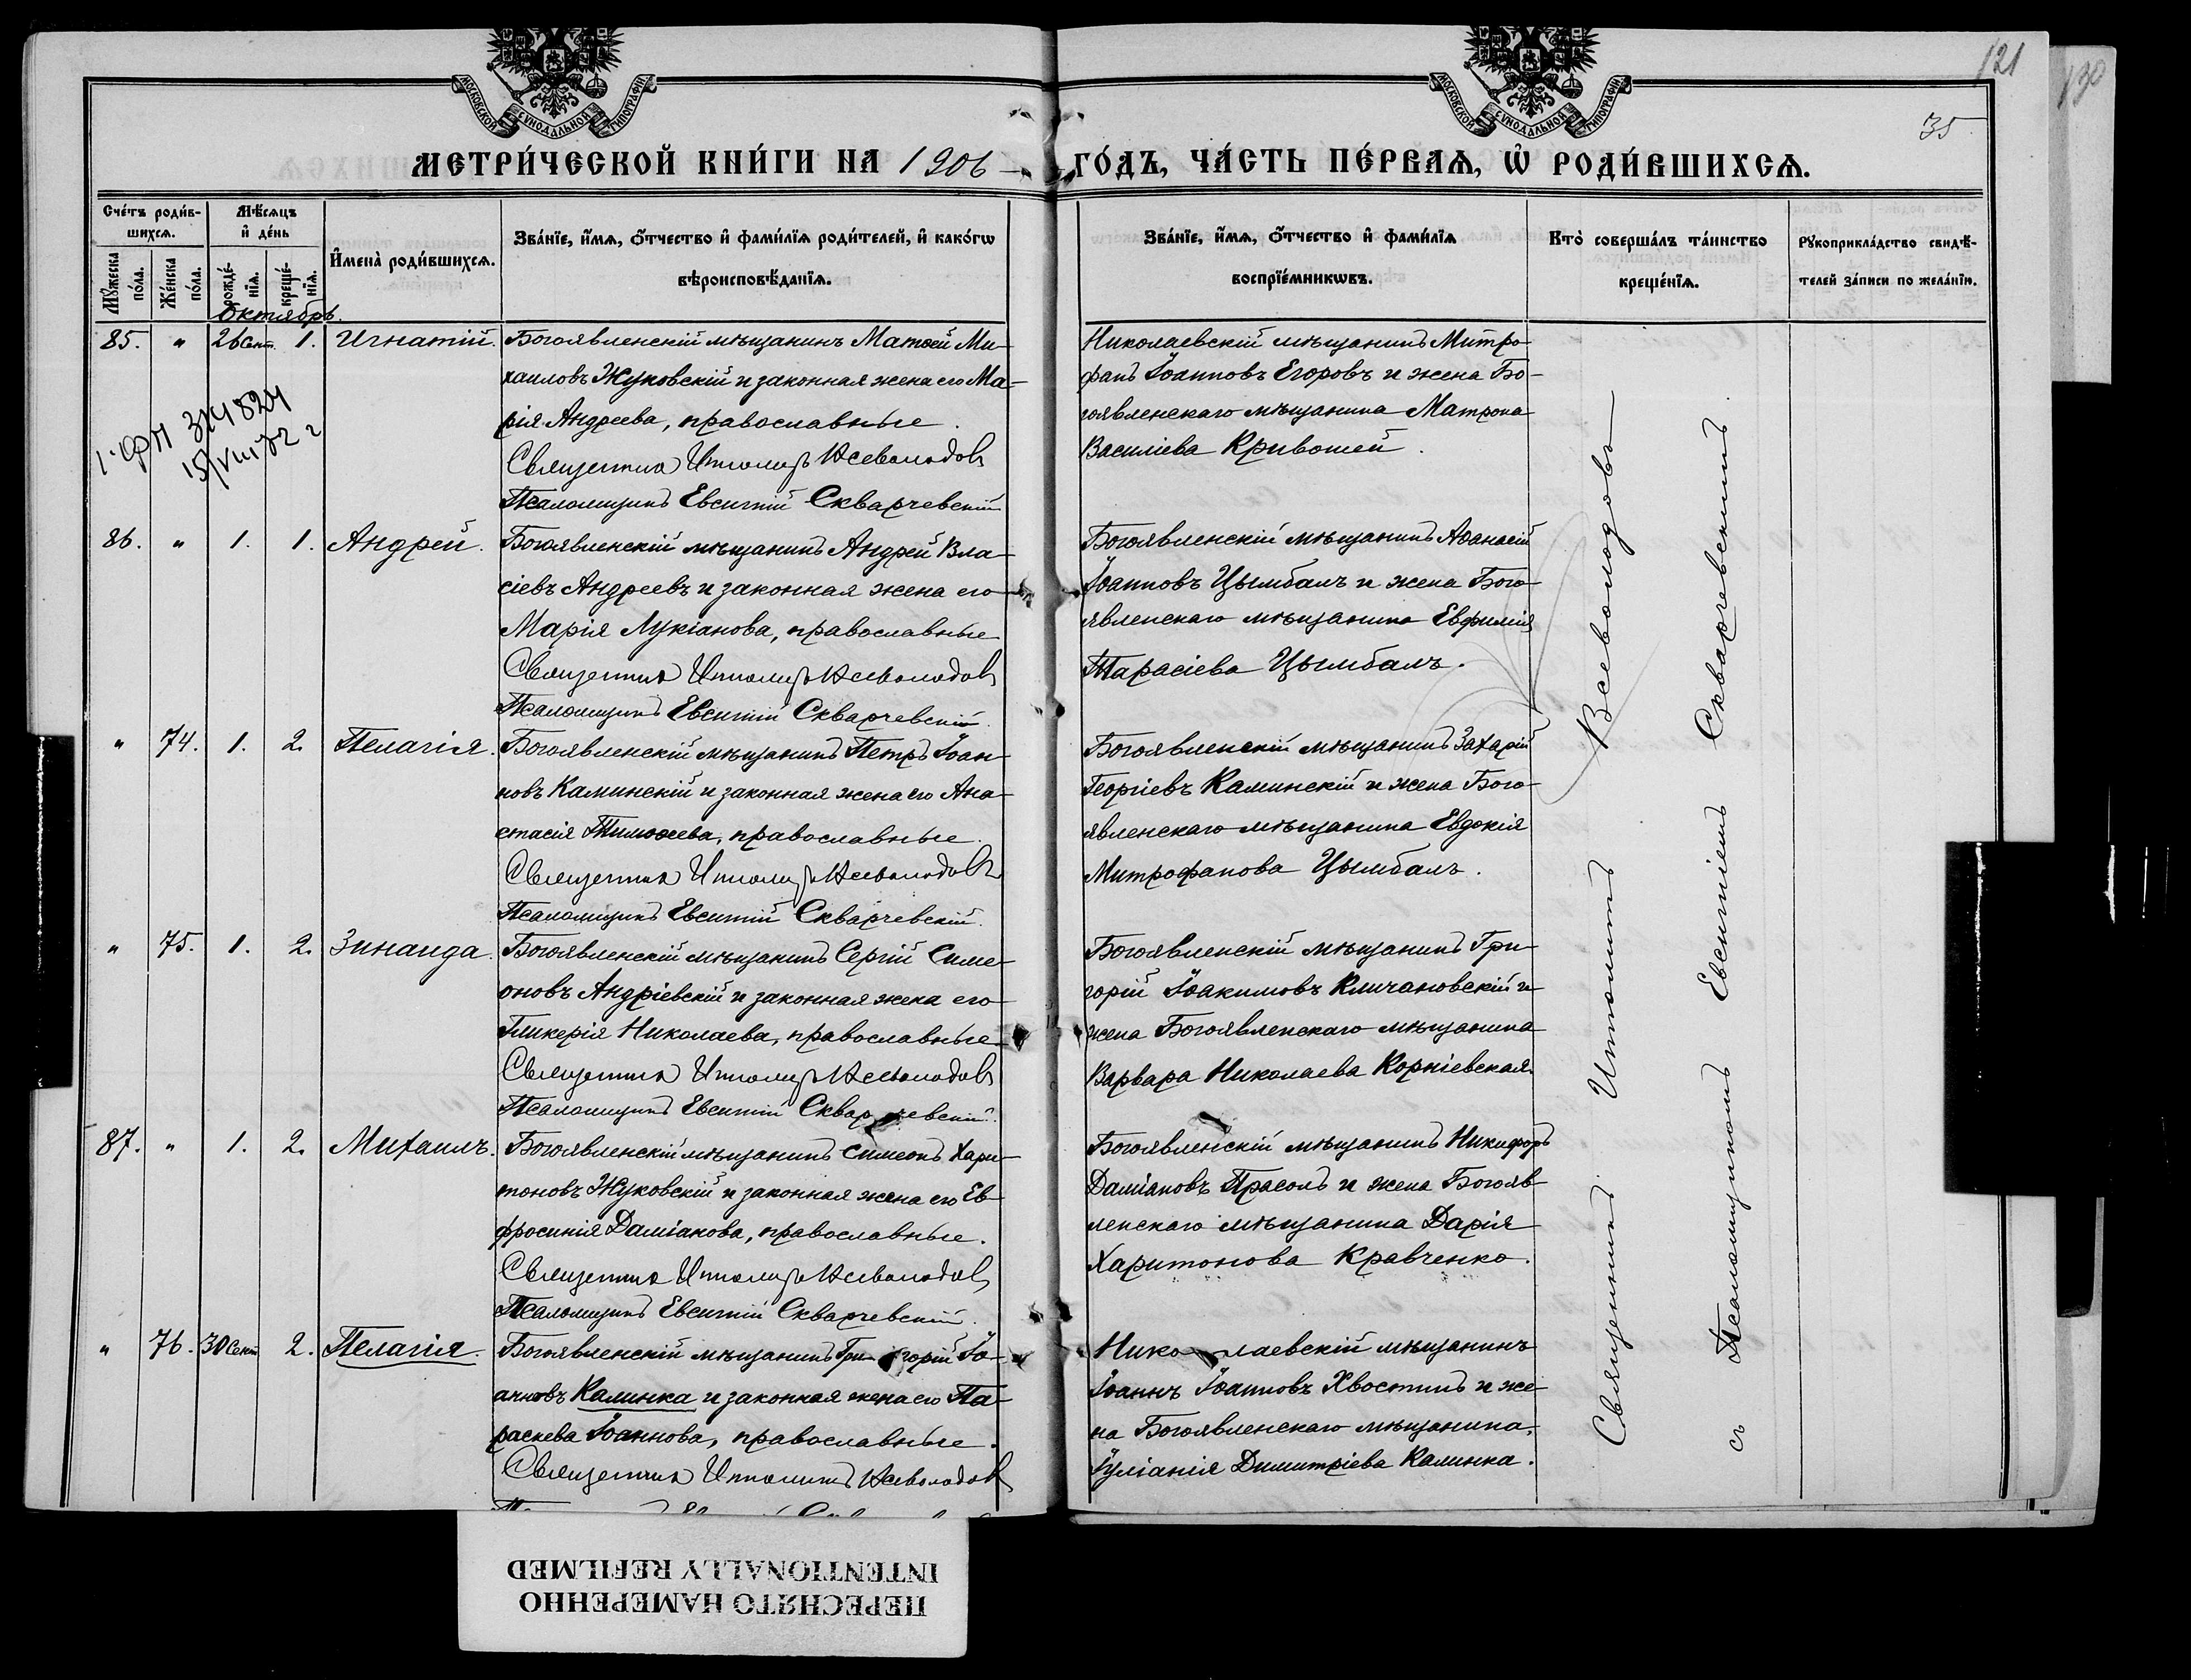 МОСКОВСКОЙ СѴНОДАЛЬНОЙ ТИПОГРАФІИ
МОСКОВСКОЙ СѴНОДАЛЬНОЙ ТИПОГРАФІИ
121
130
35
МЕТРИ́ЧЕСКОЙ КНИ́ГИ НА 1906
ГО́ДЪ, ЧА́СТЬ ПЕ́РВАЯ, Ѡ҆ РОДИ́ВШИХСѦ.
Сче́тъ роди́в-
шихсѧ.
Мꙋ́жеска
по́ла.
Же́нска
по́ла.
Мѣ́сѧцъ
и҆ де́нь
рожде́-
нїѧ.
креще́-
нїѧ.
И҆мена̀ роди́вшихсѧ.
Зва́нїе, и҆́мѧ, ѻ҆́тчество и҆ фами́лїѧ роди́телей, и҆ како́гѡ
вѣроисповѣ́данїѧ.
Зва́нїе, и҆́мѧ, ѻ҆́тчество и҆ фами́лїѧ
воспрїе́мникѡвъ.
Кто̀ соверша́лъ та́инство
креще́нїѧ.
Рꙋкоприкла́дство свидѣ́-
телей за́писи по жела́нїю.
Октябрь.
85. " 26 Сент. 1. Игнатій.
Богоявленскій мѣщанинъ Матѳей Ми-
хаиловъ Жуковскій и законная жена его Ма-
рія Андреева, православные.
Священникъ Ипполитъ Всеволодовъ
Псаломщикъ Евсигній Скварчевскій
Николаевскій мѣщанинъ Митро-
фанъ Іоанновъ Егоровъ и жена Бо-
гоявленскаго мѣщанина Матрона
Василіева Кривошей.
314824
15/VIII 72 г
86. " 1. 1. Андрей.
Богоявленскій мѣщанинъ Андрей Вла-
сіевъ Андреевъ и законная жена его
Марія Лукіанова, православные
Священникъ Ипполитъ Всеволодовъ
Псаломщикъ Евсигній Скварчевскій.
Богоявленскій мѣщанинъ Аѳанасій
Іоанновъ Цымбалъ и жена Бого-
явленскаго мѣщанина Евфимія
Тарасіева Цымбалъ.
" 74. 1. 2. Пелагія.
Богоявленскій мѣщанинъ Петръ Іоан-
новъ Каминскій и законная жена его Ана-
стасія Тимоѳеева, православные.
Священникъ Ипполитъ Всеволодовъ
Псаломщикъ Евсигній Скварчевскій.
Богоявленскій мѣщанинъ Захарій
Георгіевъ Каминскій и жена Бого-
явленскаго мѣщанина Евдокія
Митрофанова Цымбалъ.
" 75. 1. 2. Зинаида.
Богоявленскій мѣщанинъ Сергій Симе-
оновъ Андріевскій и законная жена его
Гликерія Николаева, православные
Священникъ Ипполитъ Всеволодовъ
Псаломщикъ Евсигній Скварчевскій.
Богоявленскій мѣщанинъ Гри-
горій Іоакимовъ Кличановскій и
жена Богоявленскаго мѣщанина
Варвара Николаева Корніевская.
87. " 1. 2. Михаилъ.
Богоявленскій мѣщанинъ Симеонъ Хари-
тоновъ Жуковскій и законная жена его Ев-
фросинія Даміанова, православные.
Священникъ Ипполитъ Всеволодовъ
Псаломщикъ Евсигній Скварчевскій.
Богоявленскій мѣщанинъ Никифоръ
Даміановъ Прасолъ и жена Богояв-
ленскаго мѣщанина Дарія
Харитонова Кравченко.
" 76. 30 Сент. 2. Пелагія.
Богоявленскій мѣщанинъ Григорій Іо-
анновъ Калинка и законная жена его Па-
раскева Іоаннова, православные.
Священникъ Ипполитъ Всеволодовъ
Николаевскій мѣщанинъ
Іоаннъ Іоанновъ Хвостинъ и же-
на Богоявленскаго мѣщанина,
Іуліанія Димитріева Калинка.
Священникъ Ипполитъ Всеволодовъ
съ Псаломщикомъ Евсигніемъ Скварчевскимъ.
ПЕРЕСНЯТО НАМЕРЕННО
INTENTIONALLY REFILMED